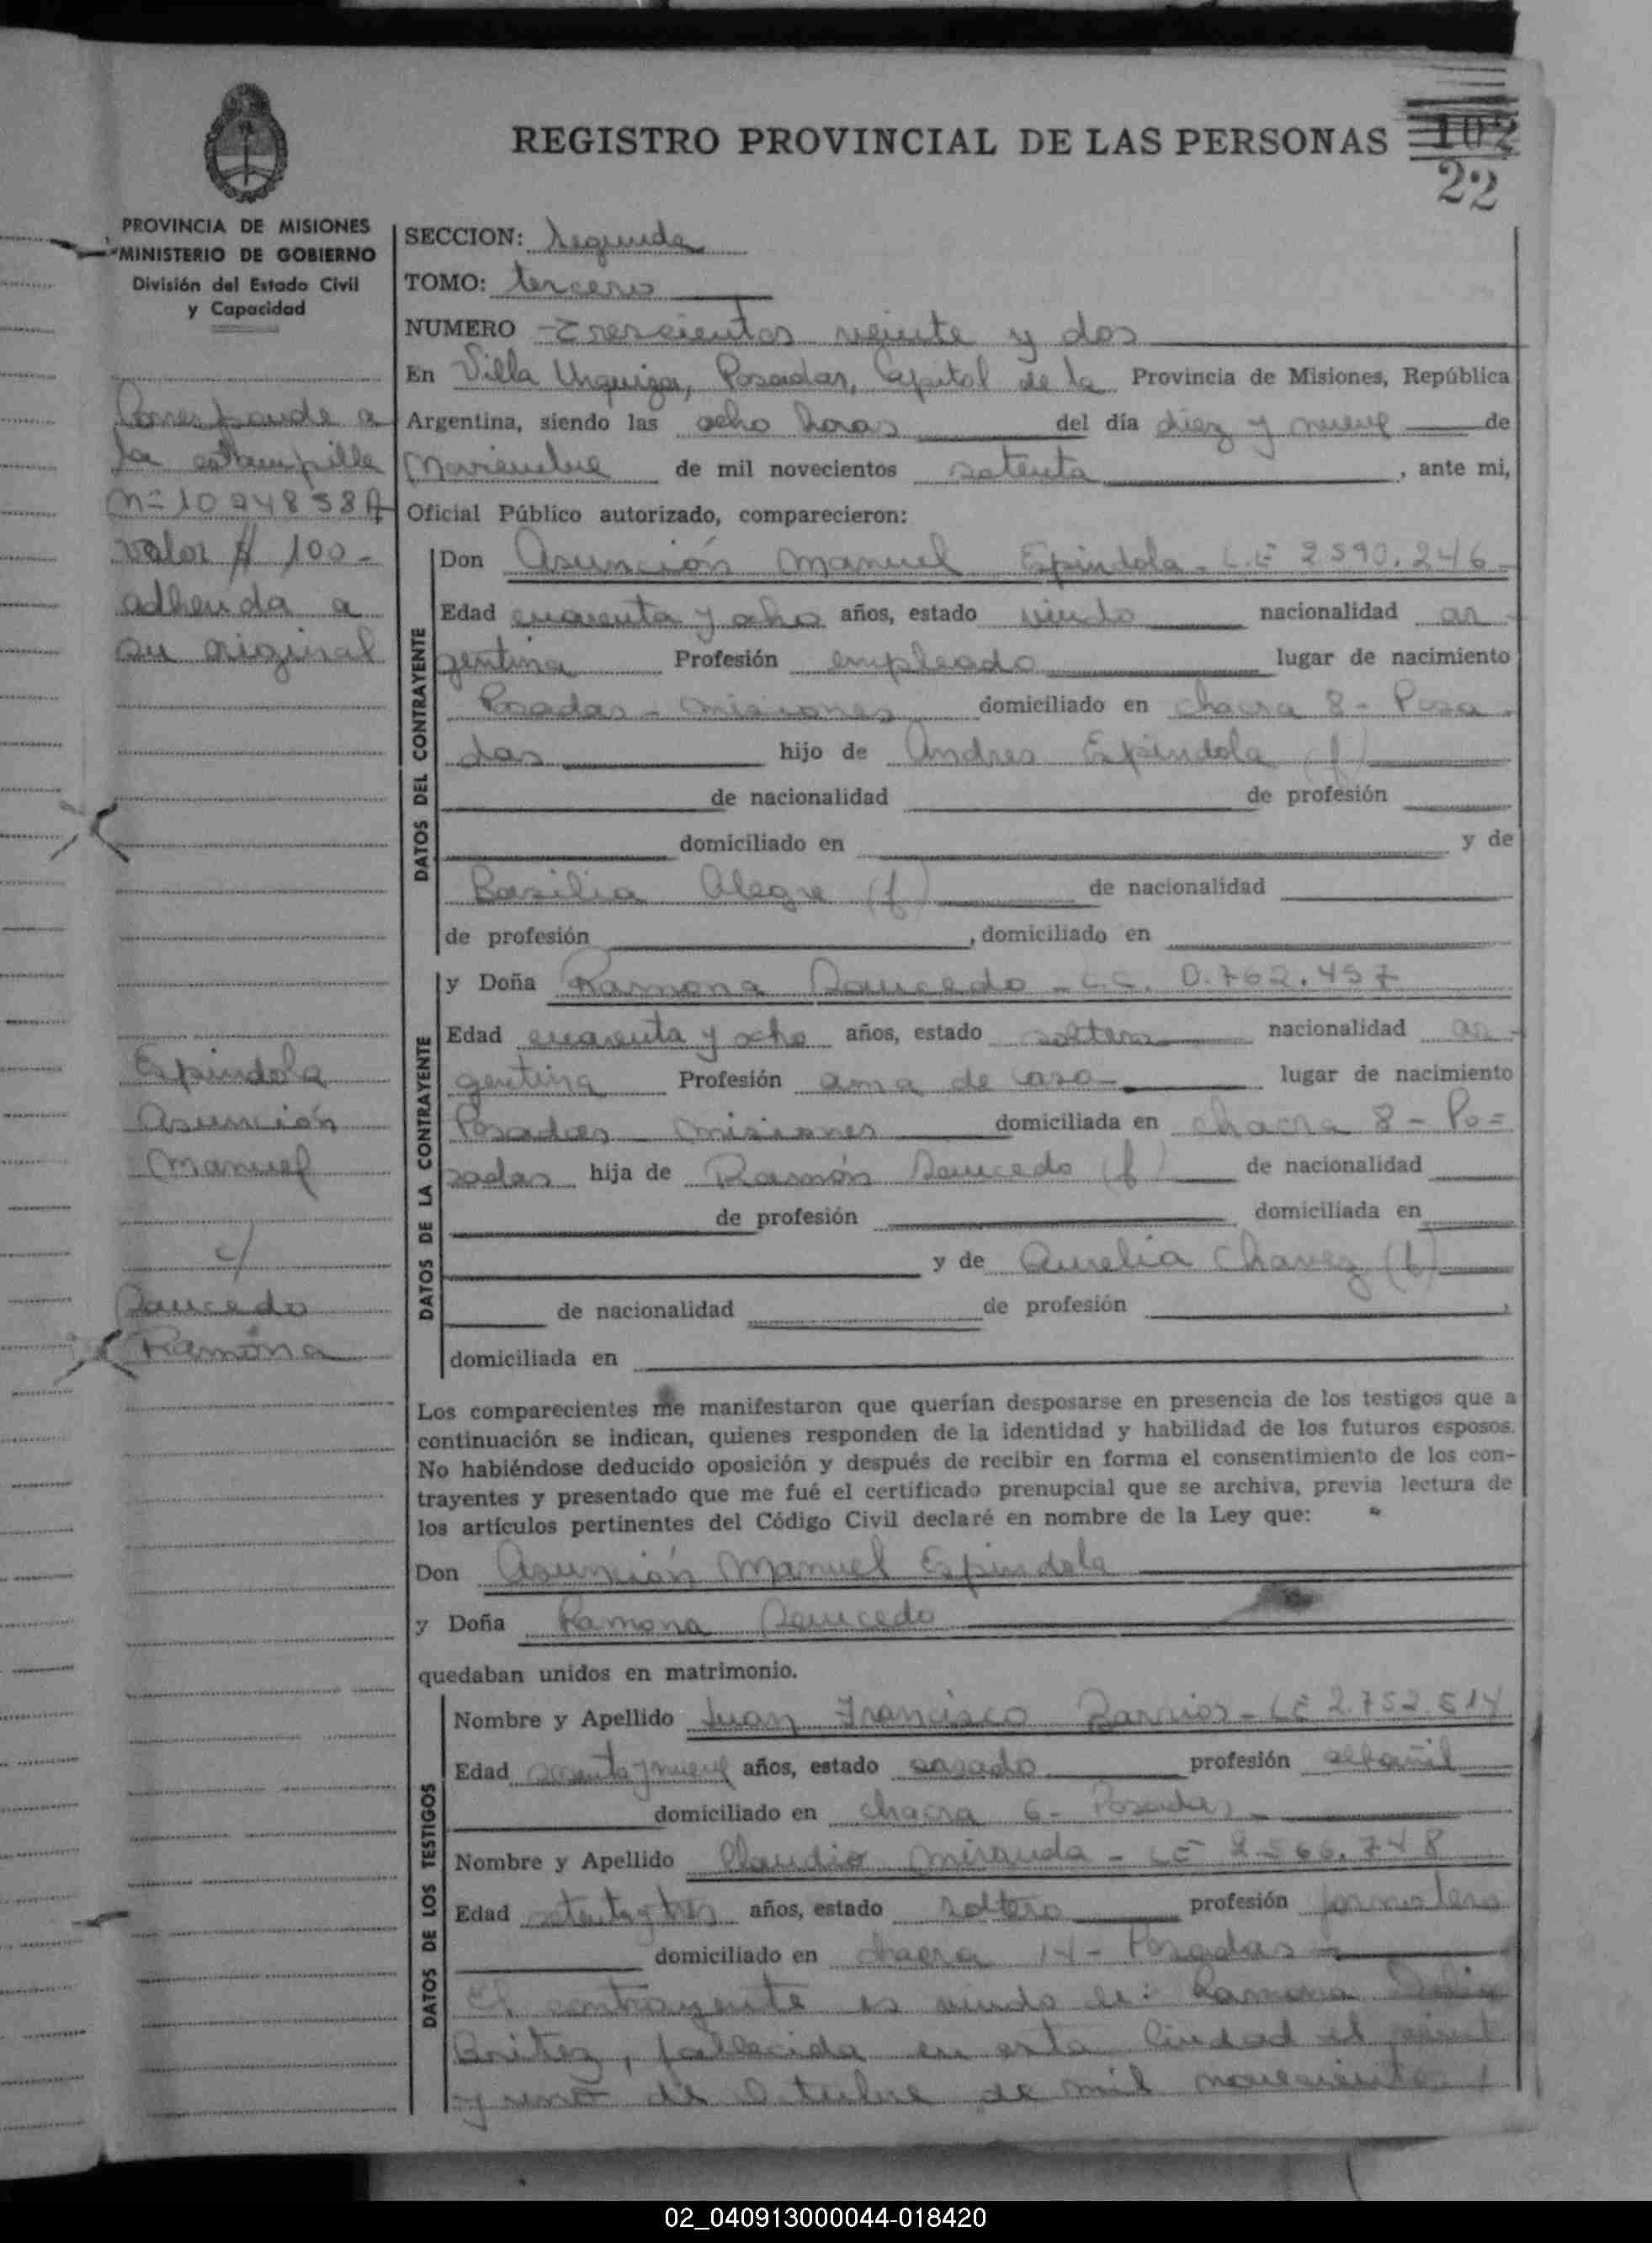 REGISTRO PROVINCIAL DE LAS PERSONAS
102
22
PROVINCIA DE MISIONES
MINISTERIO DE GOBIERNO
División del Estado Civil
y Capacidad
Corresponde a
la estampilla
valor $ 100-
adherida a
su original
Espindola
Asunción
Manuel
c/
Saucedo
Ramona
SECCION: Segunda
TOMO: tercero
NUMERO Trescientos veinte y dos
En Villa Urquiza, Posadas, Capital de la Provincia de Misiones, República
Argentina, siendo las ocho horas del día diez y nueve de
Noviembre de mil novecientos setenta, ante mi,
Oficial Público autorizado, comparecieron:
DATOS DEL CONTRAYENTE
Don Asunción Manuel Espindola - L.E 2590.246-
Edad cuarenta y ocho años, estado viudo nacionalidad ar-
gentina Profesión empleado lugar de nacimiento
Posadas - Misiones domiciliado en chacra 8 - Posa-
das hijo de Andres Espindola (f)
de nacionalidad de profesión
domiciliado en y de
Basilia Alegre (f) de nacionalidad
de profesión , domiciliado en
DATOS DE LA CONTRAYENTE
y Doña Ramona Saucedo - L.C. 0.762.457
Edad cuarenta y ocho años, estado soltera nacionalidad ar-
gentina Profesión ama de casa lugar de nacimiento
Posadas Misiones domiciliada en chacra 8 - Po=
sadas hija de Ramón Saucedo (f) de nacionalidad
de profesión domiciliada en
y de Aurelia Chavez (f)
de nacionalidad de profesión ,
domiciliada en
Los comparecientes me manifestaron que querían desposarse en presencia de los testigos que a
continuación se indican, quienes responden de la identidad y habilidad de los futuros esposos.
No habiéndose deducido oposición y después de recibir en forma el consentimiento de los con-
trayentes y presentado que me fué el certificado prenupcial que se archiva, previa lectura de
los artículos pertinentes del Código Civil declaré en nombre de la Ley que:
Don Asunción Manuel Espindola
y Doña Ramona Saucedo
quedaban unidos en matrimonio.
DATOS DE LOS TESTIGOS
Nombre y Apellido Juan Francisco Barrios - LE 2.752.514
Edad y nueve años, estado casado profesión albañil
domiciliado en chacra 6 - Posadas
Nombre y Apellido Claudio Miranda - LE 2.566.748
Edad setenta y tres años, estado soltero profesión jornalero
domiciliado en chacra 14 - Posadas
El contrayente es viudo de: Ramona
Benitez, fallecida en esta Ciudad el
y uno de Octubre de mil novecientos
02_040913000044-018420